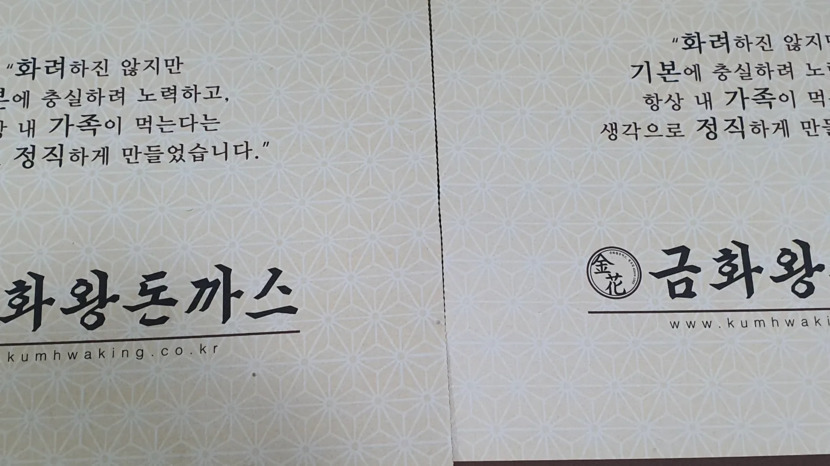 “화려하진 않지만
에 충실하려 노력하고,
내 가족이 먹는다는
정직하게 만들었습니다.”
화왕돈까스
kumhwaking.co.kr
“화려하진 않지만
기본에 충실하려
항상 내 가족이
생각으로 정직하게
金花
금화왕
www.kumhwaki